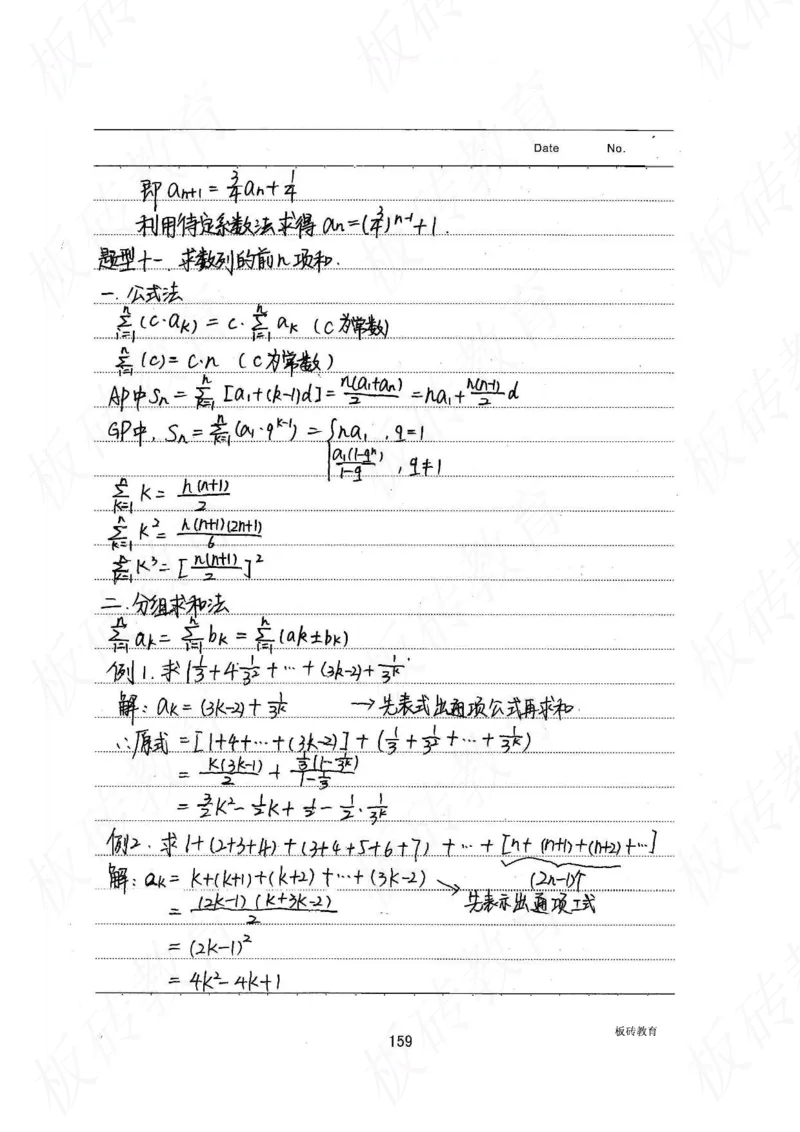 Date No.
即 aₙ₊₁ = 3/4 aₙ + 1/4
利用待定系数法求得 aₙ=(3/4)ⁿ⁻¹+1.
题型十一. 求数列的前n项和.
一. 公式法
∑_{i=1}^{n} (c·aₖ) = c·∑_{i=1}^{n} aₖ (C为常数)
∑_{i=1}^{n} (c) = c·n (C为常数)
AP中 Sₙ = ∑_{k=1}^{n} [a₁+(k-1)d] = n(a₁+aₙ)/2 = na₁ + n(n-1)/2 d
GP中, Sₙ = ∑_{k=1}^{n} (a₁·qᵏ⁻¹) = { na₁ , q=1
a₁(1-qⁿ)/(1-q) , q≠1
∑_{k=1}^{n} k = n(n+1)/2
∑_{k=1}^{n} k² = n(n+1)(2n+1)/6
∑_{k=1}^{n} k³ = [n(n+1)/2]²
二. 分组求和法
∑_{i=1}^{n} aₖ = ∑_{i=1}^{n} bₖ = ∑_{i=1}^{n} (aₖ±bₖ)
例1. 求 1 1/3 + 4 1/3² + ··· + (3k-2) + 1/3ᵏ
解: aₖ = (3k-2) + 1/3ᵏ → 先表式出通项公式再求和
∴原式 = [1+4+···+(3k-2)] + (1/3 + 1/3² + ··· + 1/3ᵏ)
= k(3k-1)/2 + 1/3(1-1/3ᵏ)/(1-1/3)
= 3/2 k² - 1/2 k + 1/2 - 1/2 · 1/3ᵏ
例2. 求 1+(2+3+4)+(3+4+5+6+7) + ··· + [n+(n+1)+(n+2)+···]
(2n-1)个
解: aₖ = k+(k+1)+(k+2)+···+(3k-2) → 先表示出通项工式
= (2k-1)(k+3k-2)/2
= (2k-1)²
= 4k²-4k+1
159
板砖教育